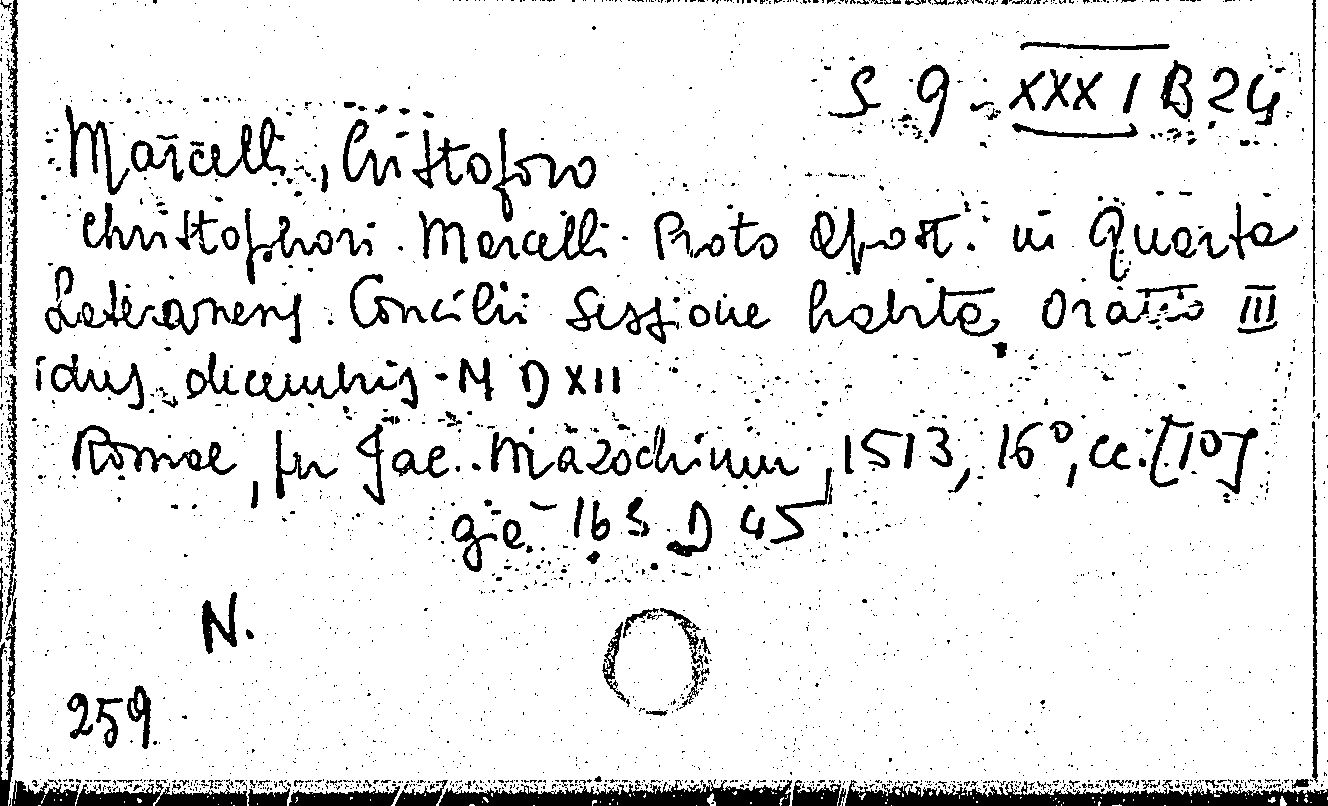 S 9 - XXX I B 24
Marcelli, Cristoforo
Christophori. Marcelli. Proto Apost. in Quarta
Lateranens. Concilii Sessione habita Oratio III
idus decembris. M D XII
Romae, per Jac. Mazochium, 1513, 16°, cc. [10]
già 163 D 45
N.
259